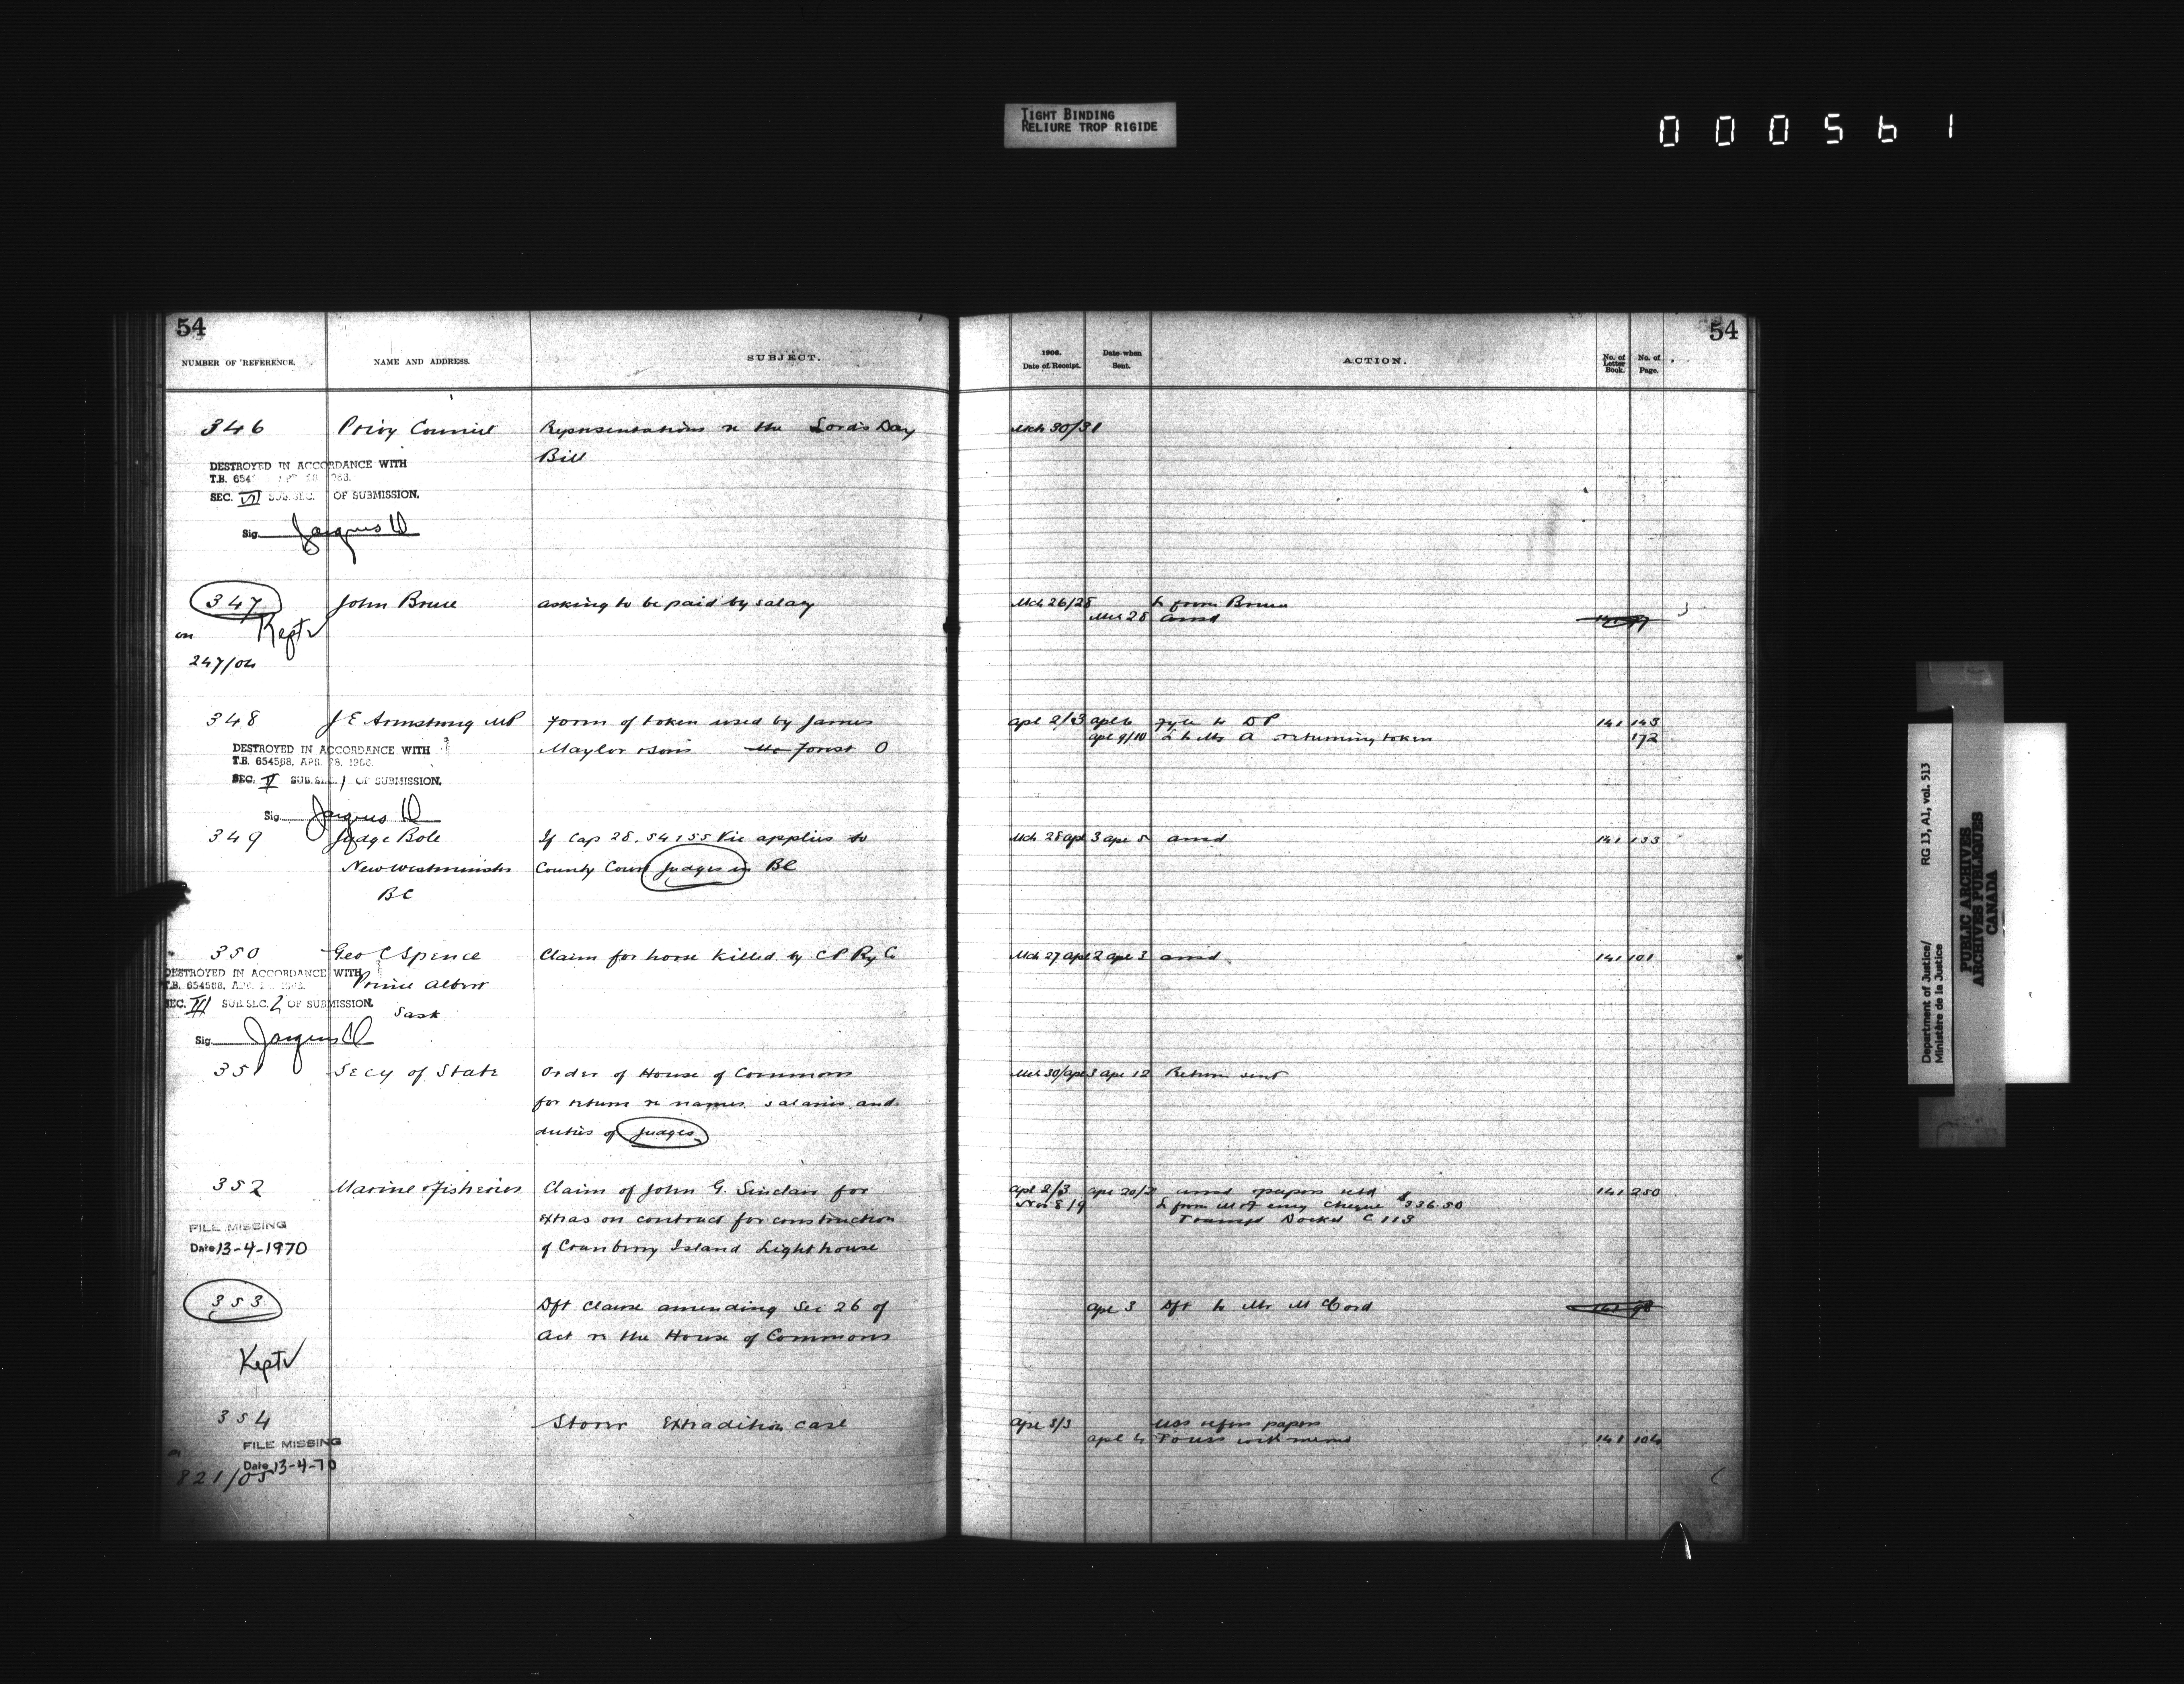 TIGHT BINDING
RELIURE TROP RIGIDE
000561
54
NUMBER OF REFERENCE. NAME AND ADDRESS. SUBJECT.
346 Privy Council Representations re the Lord's Day
Bill
DESTROYED IN ACCORDANCE WITH
T.B. 654
SEC. VI SUB.SEC. OF SUBMISSION.
Sig.
347 John Bruce asking to be paid by salary
on Kept
247/04
348 J E Armstrong MP Form of token used by James
Maylor & Sons Forest O
DESTROYED IN ACCORDANCE WITH
T.B. 654568, APR. 28, 1966.
SEC. V SUB.SEC. 1 OF SUBMISSION.
Sig.
349 Judge Bole If Cap 28. 54 & 55 Vic applies to
New Westminster County Court Judges in BC
BC
350 Geo C Spence Claim for horse killed by C P Ry Co
DESTROYED IN ACCORDANCE WITH
T.B. 654568,
Prince Albert
SEC. III SUB.SEC. 2 OF SUBMISSION.
Sask
Sig.
351 Secy of State Order of House of Commons
for return re names, salaries and
duties of Judges
352 Marine & Fisheries Claim of John G. Sinclair for
extras on contract for construction
FILE MISSING
Date 13-4-1970 of Cranberry Island Lighthouse
353 Dft Clause amending Sec 26 of
Act re the House of Commons
Kept
354 Storer Extradition case
FILE MISSING
Date 13-4-70
821/05
54
1906. Date of Receipt. Date when Sent. ACTION. No. of Letter Book. No. of Page.
Mch 30/31
Mch 26/28 L from Bruce
Mch 28 ansd
Apl 2/3 Apl 6 Fyle to DP 141 143
Apl 9/10 L to Mr A returning token 172
Mch 28 Apl 3 Apl 5 ansd 141 133
Mch 27 Apl 2 Apl 3 ansd 141 101
Mch 30/Apl 3 Apl 12 Return sent
Apl 2/3 Apl 20/21 ansd papers retd 141 250
Nov 8/9 L from M & F encg Cheque $336.50
Transfd Docket C 113
Apl 3 Dft to Mr McCord 141 98
Apl 3/3 USS refers papers
Apl 4 To USS with memo 141 104
Department of Justice/ RG 13, A1, vol. 513
Ministère de la Justice
PUBLIC ARCHIVES
ARCHIVES PUBLIQUES
CANADA